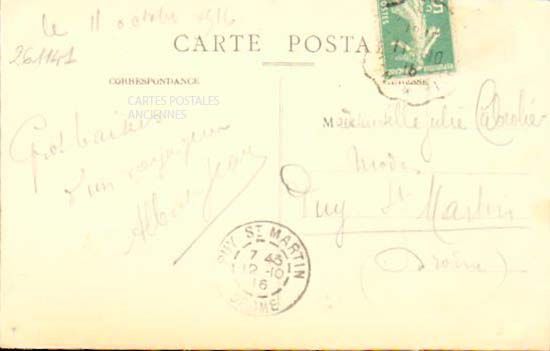 le 11 octobre 1916
261141
CARTE POSTA
CORRESPONDANCE
CARTES POSTALES
ANCIENNES
Gros baisers
d'un voyageur
Albert Jean
Mademoiselle Julie
Modes
Puy St Martin
(Drôme)
PUY ST MARTIN
7 45
12 -10
16
DROME